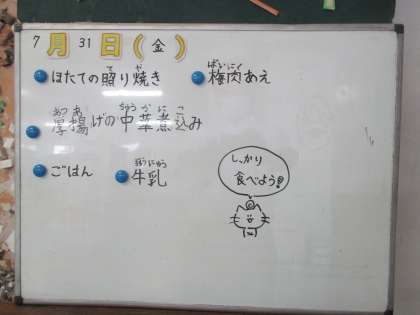 7月31日(金)
ほたての照り焼き 梅肉あえ
厚揚げの中華煮込み
ごはん 牛乳
しっかり
食べよう!!